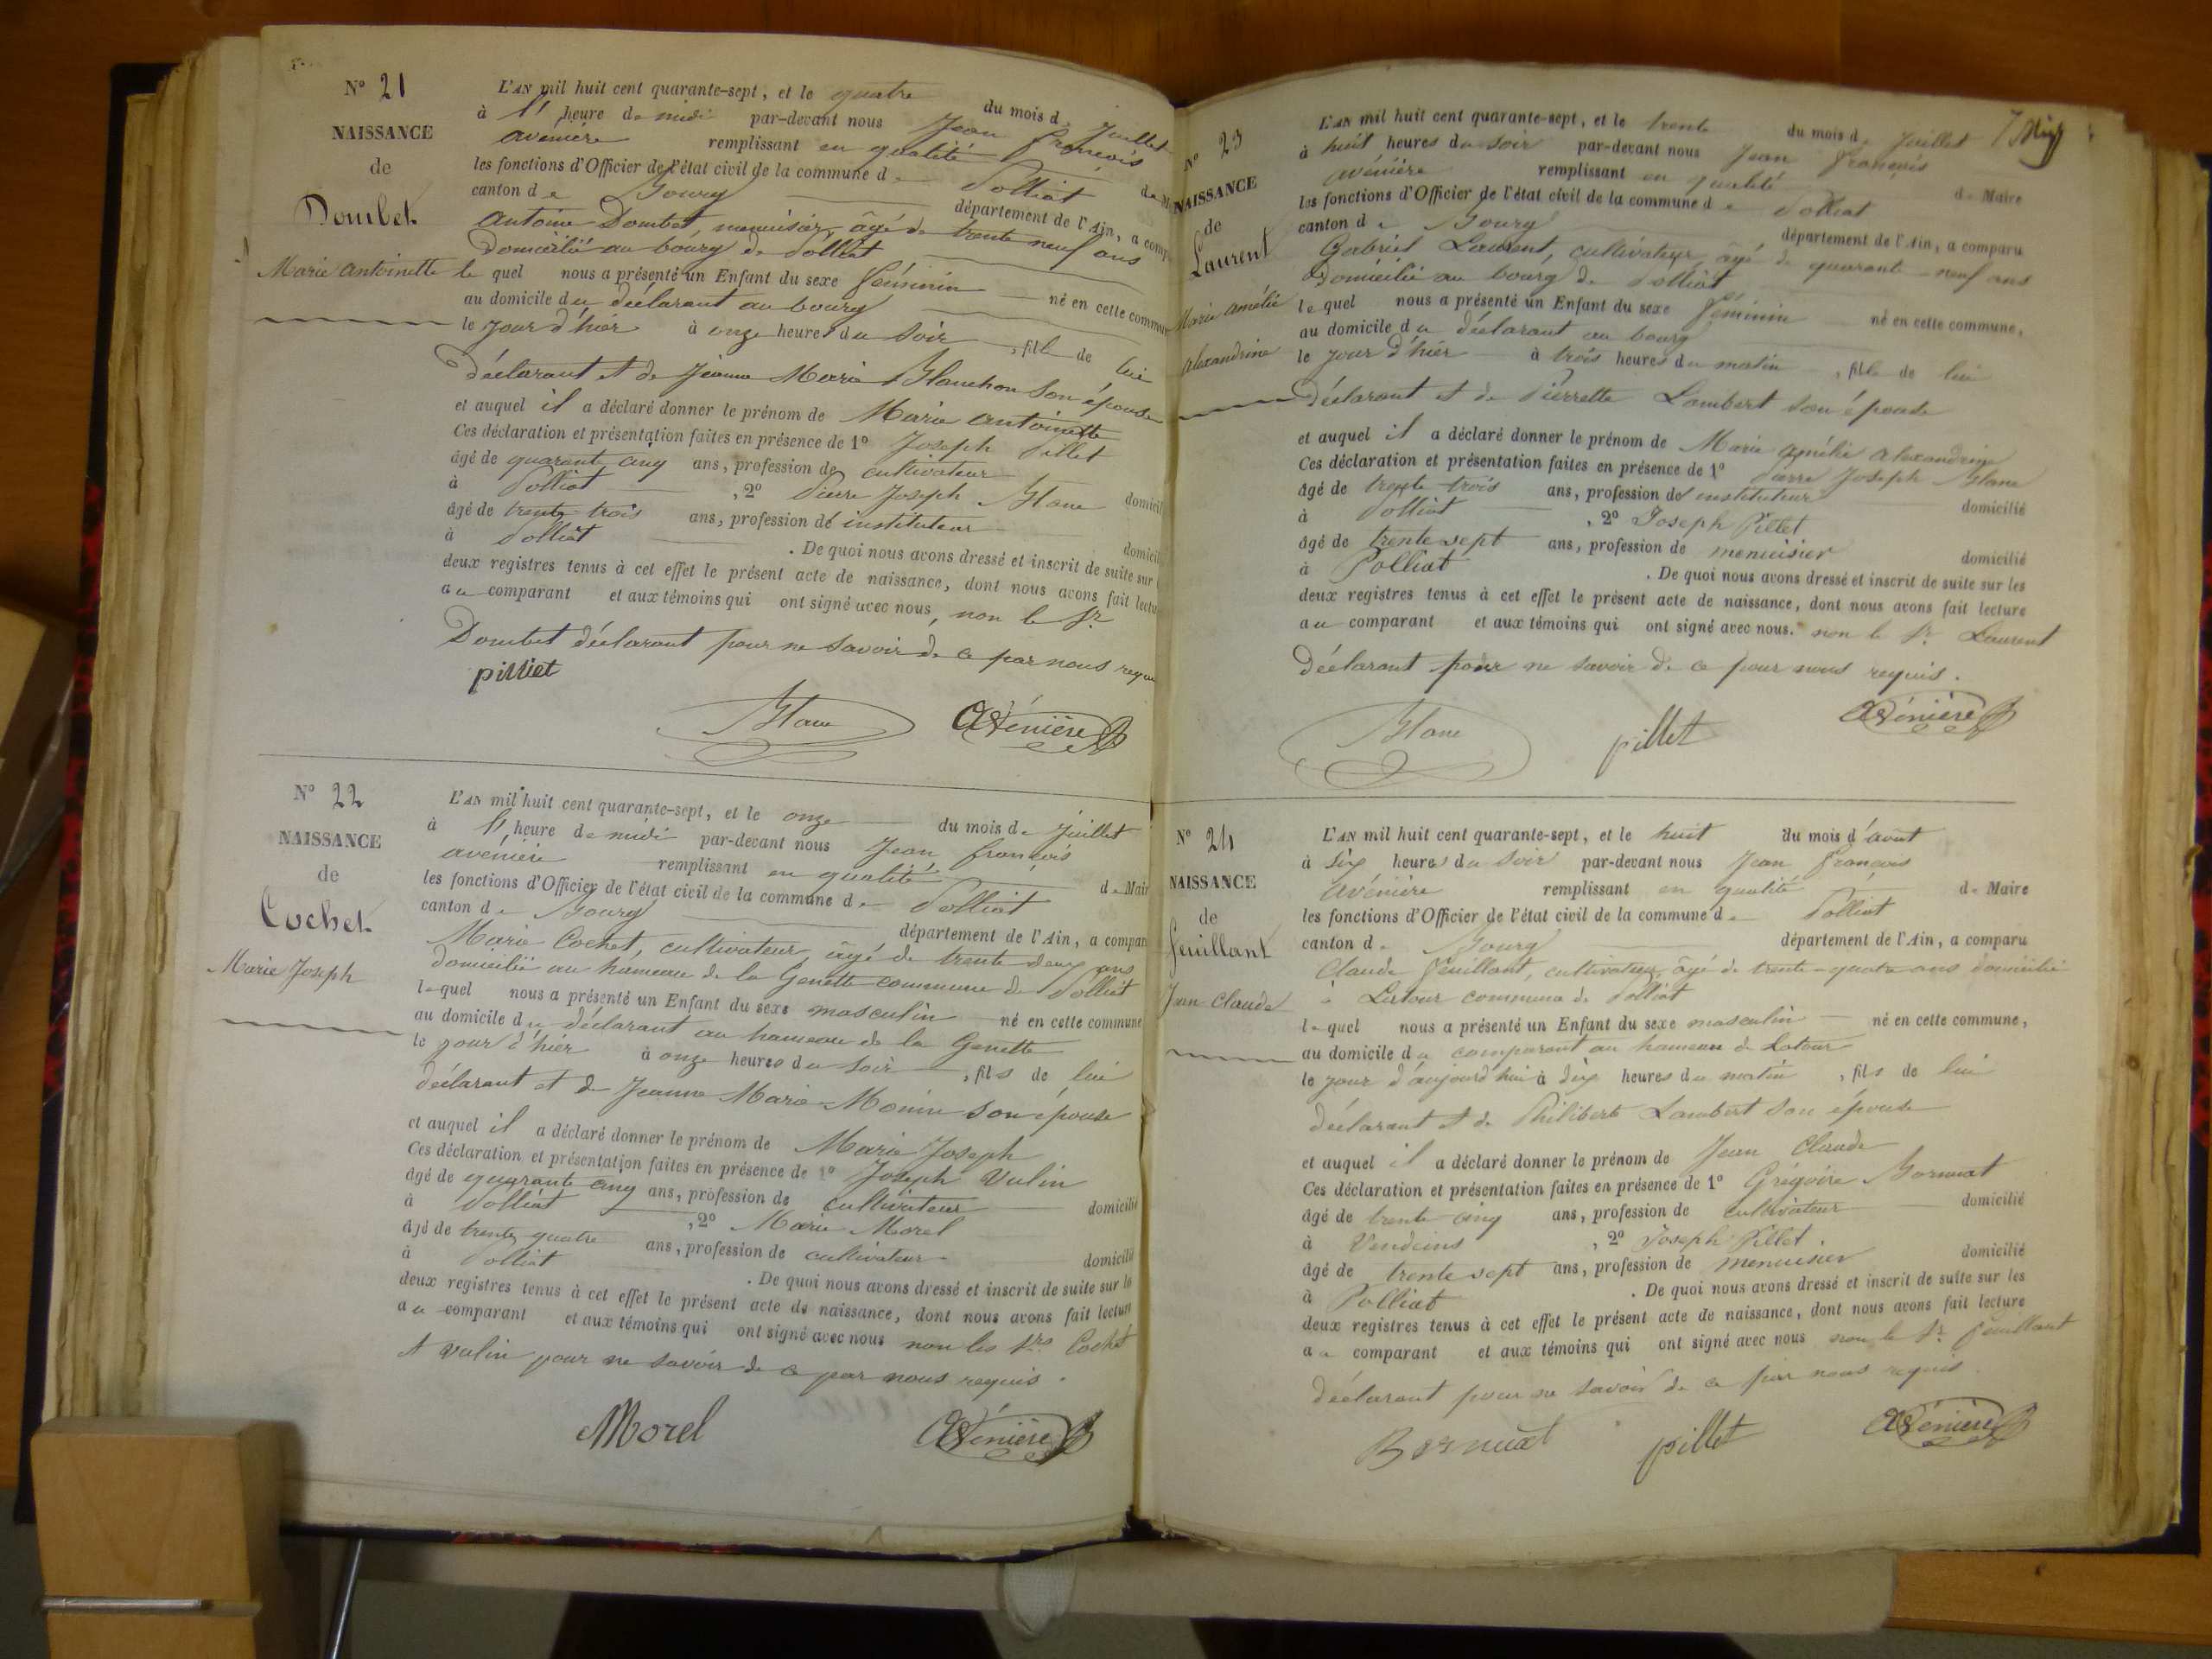 N° 21
NAISSANCE
de
Dombet
Marie antoinette
L'AN mil huit cent quarante-sept, et le quatre du mois de Juillet
à l' heure de midi par-devant nous Jean françois
avénière remplissant en qualité de M
les fonctions d'Officier de l'état civil de la commune de Polliat
canton de Bourg département de l'Ain, a comp
antoine Dombet, menuisier, âgé de trente neuf ans
Domicilié au bourg de Polliat
le quel nous a présenté un Enfant du sexe féminin né en cette commun
au domicile du déclarant au bourg
le jour d'hier à onze heures du soir, fille de lui
déclarant et de Jeanne Marie Blanchon son épouse
et auquel il a déclaré donner le prénom de Marie antoinette
Ces déclaration et présentation faites en présence de 1° Joseph Pillet
âgé de quarante cinq ans, profession de cultivateur domicil
à Polliat, 2° Pierre Joseph Blanc
âgé de trente trois ans, profession de instituteur domicil
à Polliat. De quoi nous avons dressé et inscrit de suite sur
deux registres tenus à cet effet le présent acte de naissance, dont nous avons fait lectu
au comparant et aux témoins qui ont signé avec nous, non le Sr
Dombet déclarant pour ne savoir de ce par nous requ
pilliet
Blanc
Avénière
N° 22
NAISSANCE
de
Cochet
Marie Joseph
L'AN mil huit cent quarante-sept, et le onze du mois de Juillet
à l' heure de midi par-devant nous Jean françois
avénière remplissant en qualité de Mair
les fonctions d'Officier de l'état civil de la commune de Polliat
canton de Bourg département de l'Ain, a compar
Marie Cochet, cultivateur, âgé de trente deux ans
domicilié au hameau de la Genette commune de Polliat
lequel nous a présenté un Enfant du sexe masculin né en cette commune
au domicile du déclarant au hameau de la Genette
le jour d'hier à onze heures du soir, fils de lui
déclarant et de Jeanne Marie Monin son épouse
et auquel il a déclaré donner le prénom de Marie Joseph
Ces déclaration et présentation faites en présence de 1° Joseph Vulin
âgé de quarante cinq ans, profession de cultivateur domicilié
à Polliat, 2° Marie Morel
âgé de trente quatre ans, profession de cultivateur domicilié
à Polliat. De quoi nous avons dressé et inscrit de suite sur les
deux registres tenus à cet effet le présent acte de naissance, dont nous avons fait lecture
au comparant et aux témoins qui ont signé avec nous non les Srs Cochet
et Vulin pour ne savoir de ce par nous requis.
Morel
Avénière
N° 23
NAISSANCE
de
Laurent
Marie amélie
alexandrine
L'AN mil huit cent quarante-sept, et le trente du mois de Juillet
à huit heures du soir par-devant nous Jean françois
avénière remplissant en qualité de Maire
les fonctions d'Officier de l'état civil de la commune de Polliat
canton de Bourg département de l'Ain, a comparu
Gabriel Laurent, cultivateur, âgé de quarante-neuf ans
Domicilié au bourg de Polliat
lequel nous a présenté un Enfant du sexe féminin né en cette commune,
au domicile du déclarant au bourg
le jour d'hier à trois heures du matin, fille de lui
déclarant et de Pierrette Lambert son épouse
et auquel il a déclaré donner le prénom de Marie amélie alexandrine
Ces déclaration et présentation faites en présence de 1° Pierre Joseph Blanc
âgé de trente trois ans, profession de instituteur domicilié
à Polliat, 2° Joseph Pillet
âgé de trente sept ans, profession de menuisier domicilié
à Polliat. De quoi nous avons dressé et inscrit de suite sur les
deux registres tenus à cet effet le présent acte de naissance, dont nous avons fait lecture
au comparant et aux témoins qui ont signé avec nous. non le Sr Laurent
Déclarant pour ne savoir de ce pour nous requis.
Blanc
pillet
Avénière
N° 24
NAISSANCE
de
feuillant
Jean Claude
L'AN mil huit cent quarante-sept, et le huit du mois d'août
à six heures du soir par-devant nous Jean françois
avénière remplissant en qualité de Maire
les fonctions d'Officier de l'état civil de la commune de Polliat
canton de Bourg département de l'Ain, a comparu
Claude feuillant, cultivateur, âgé de trente-quatre ans domicilié
à Letour commune de Polliat
lequel nous a présenté un Enfant du sexe masculin né en cette commune,
au domicile du comparant au hameau de Latour
le jour d'aujourd'hui à dix heures du matin, fils de lui
déclarant et de Philiberte Lambert son épouse
et auquel il a déclaré donner le prénom de Jean Claude
Ces déclaration et présentation faites en présence de 1° Grégoire Bornuat
âgé de trente cinq ans, profession de cultivateur domicilié
à Vendeins, 2° Joseph Pillet
âgé de trente sept ans, profession de menuisier domicilié
à Polliat. De quoi nous avons dressé et inscrit de suite sur les
deux registres tenus à cet effet le présent acte de naissance, dont nous avons fait lecture
au comparant et aux témoins qui ont signé avec nous non le Sr feuillant
déclarant pour ne savoir de ce par nous requis.
Bornuat
pillet
Avénière